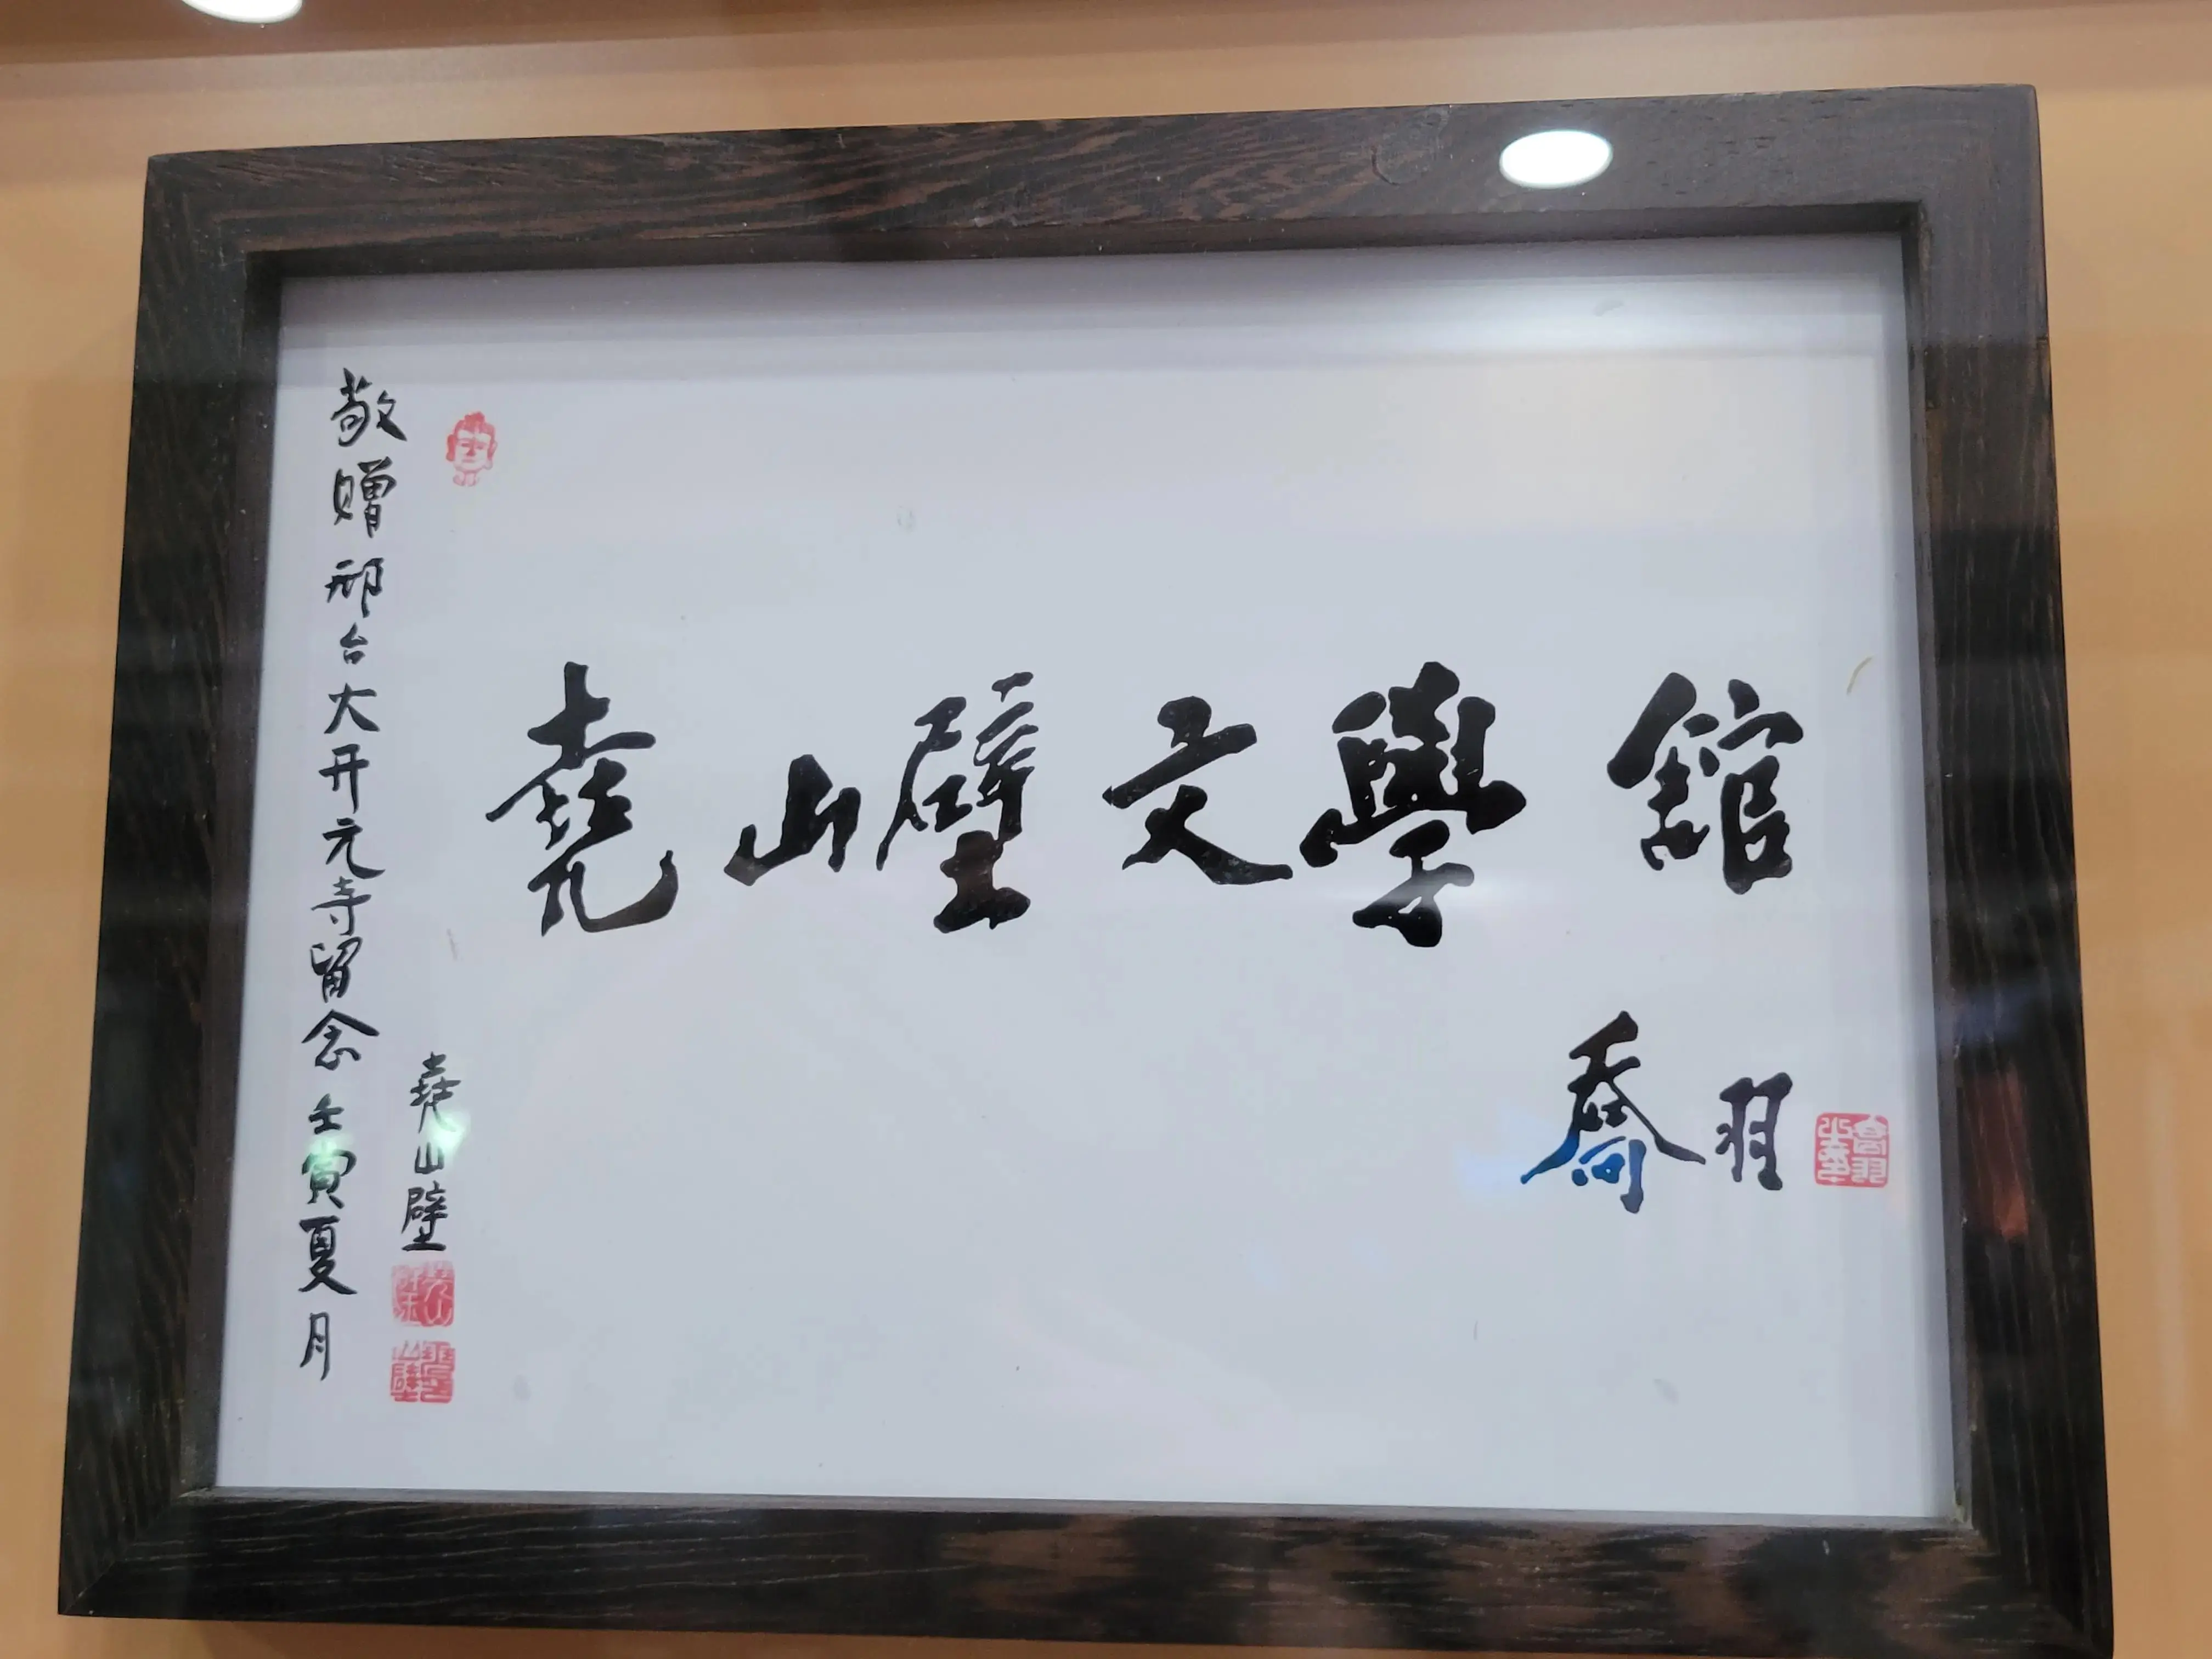 堯山壁文學館
喬羽
敬赠邢台大开元寺留念 壬寅夏月
堯山壁